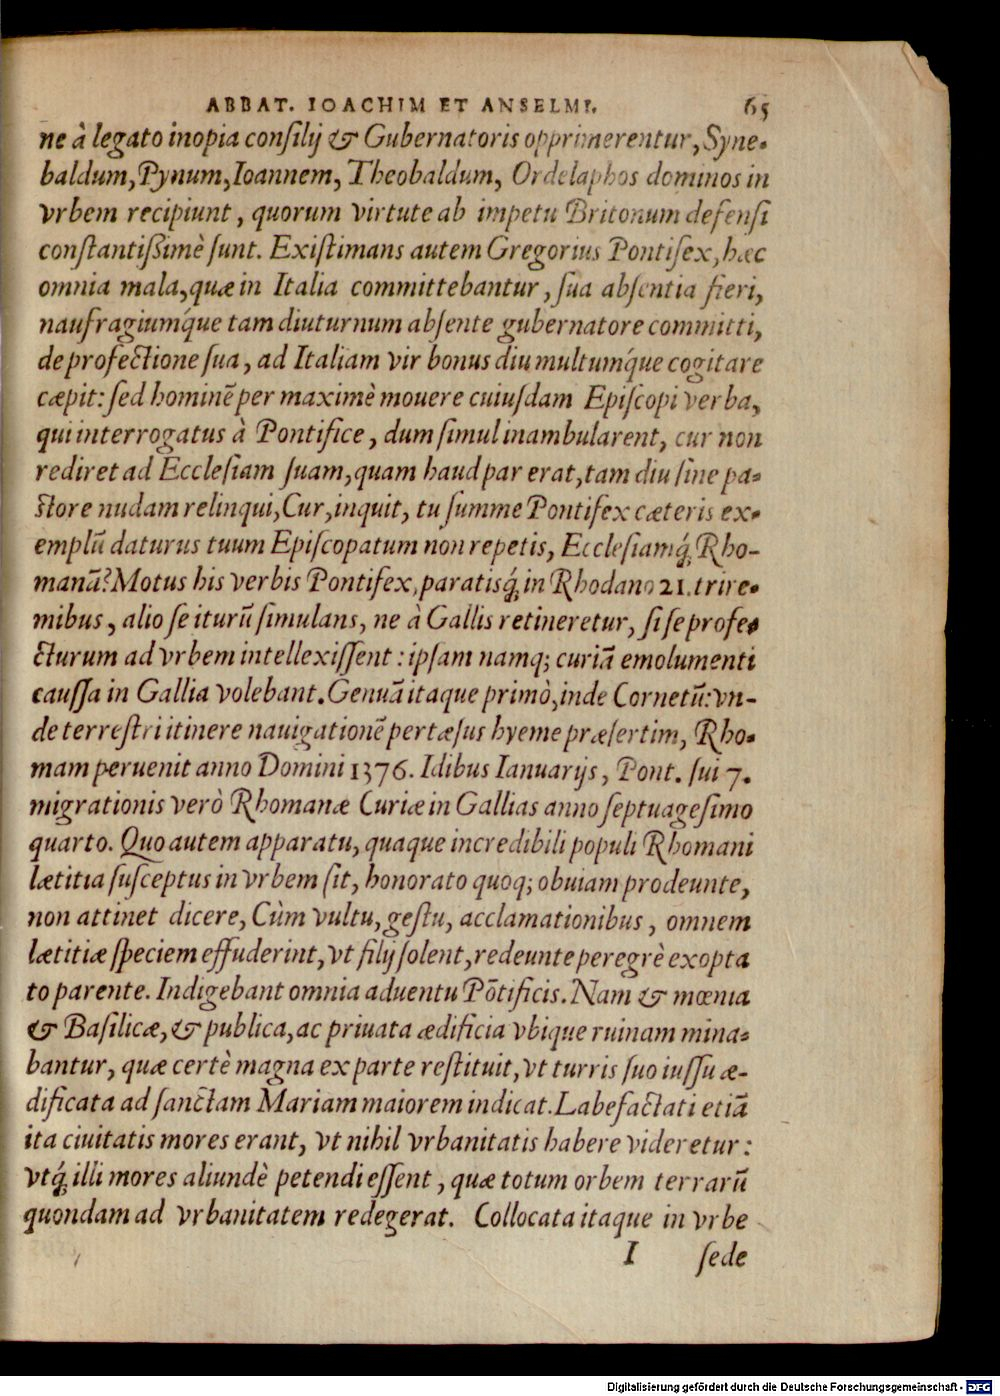 ABBAT. IOACHIM ET ANSELMI. 65
ne à legato inopia conſilij & Gubernatoris opprimerentur, Syne-
baldum, Pynum, Ioannem, Theobaldum, Ordelaphos dominos in
vrbem recipiunt, quorum virtute ab impetu Britonum defenſi
conſtantißimè ſunt. Exiſtimans autem Gregorius Pontifex, hæc
omnia mala, quæ in Italia committebantur, ſua abſentia fieri,
naufragiumq́ue tam diuturnum abſente gubernatore committi,
de profectione ſua, ad Italiam vir bonus diu multumq́ue cogitare
cæpit: ſed hominē per maximè mouere cuiuſdam Epiſcopi verba,
qui interrogatus à Pontifice, dum ſimul inambularent, cur non
rediret ad Eccleſiam ſuam, quam haud par erat, tam diu ſine pa-
ſtore nudam relinqui, Cur, inquit, tu ſumme Pontifex cæteris ex-
emplū daturus tuum Epiſcopatum non repetis, Eccleſiamq́; Rho-
manā? Motus his verbis Pontifex, paratisq́; in Rhodano 21. trire-
mibus, alio ſe iturū ſimulans, ne à Gallis retineretur, ſi ſe profe-
cturum ad vrbem intellexiſſent: ipſam namq; curiā emolumenti
cauſſa in Gallia volebant. Genuā itaque primò, inde Cornetū: vn-
de terreſtri itinere nauigationē pertæſus hyeme præſertim, Rho-
mam peruenit anno Domini 1376. Idibus Ianuarijs, Pont. ſui 7.
migrationis verò Rhomanæ Curiæ in Gallias anno ſeptuageſimo
quarto. Quo autem apparatu, quaque incredibili populi Rhomani
lætitia ſuſceptus in vrbem ſit, honorato quoq; obuiam prodeunte,
non attinet dicere, Cùm vultu, geſtu, acclamationibus, omnem
lætitiæ ſpeciem effuderint, vt filij ſolent, redeunte peregrè exopta
to parente. Indigebant omnia aduentu Pōtificis. Nam & mœnia
& Baſilicæ, & publica, ac priuata ædificia vbique ruinam mina-
bantur, quæ certè magna ex parte reſtituit, vt turris ſuo iuſſu æ-
dificata ad ſanctam Mariam maiorem indicat. Labefactati etiā
ita ciuitatis mores erant, vt nihil vrbanitatis habere videretur:
vtq́; illi mores aliundè petendi eſſent, quæ totum orbem terrarū
quondam ad vrbanitatem redegerat. Collocata itaque in vrbe
I ſede
Digitalisierung gefördert durch die Deutsche Forschungsgemeinschaft - DFG